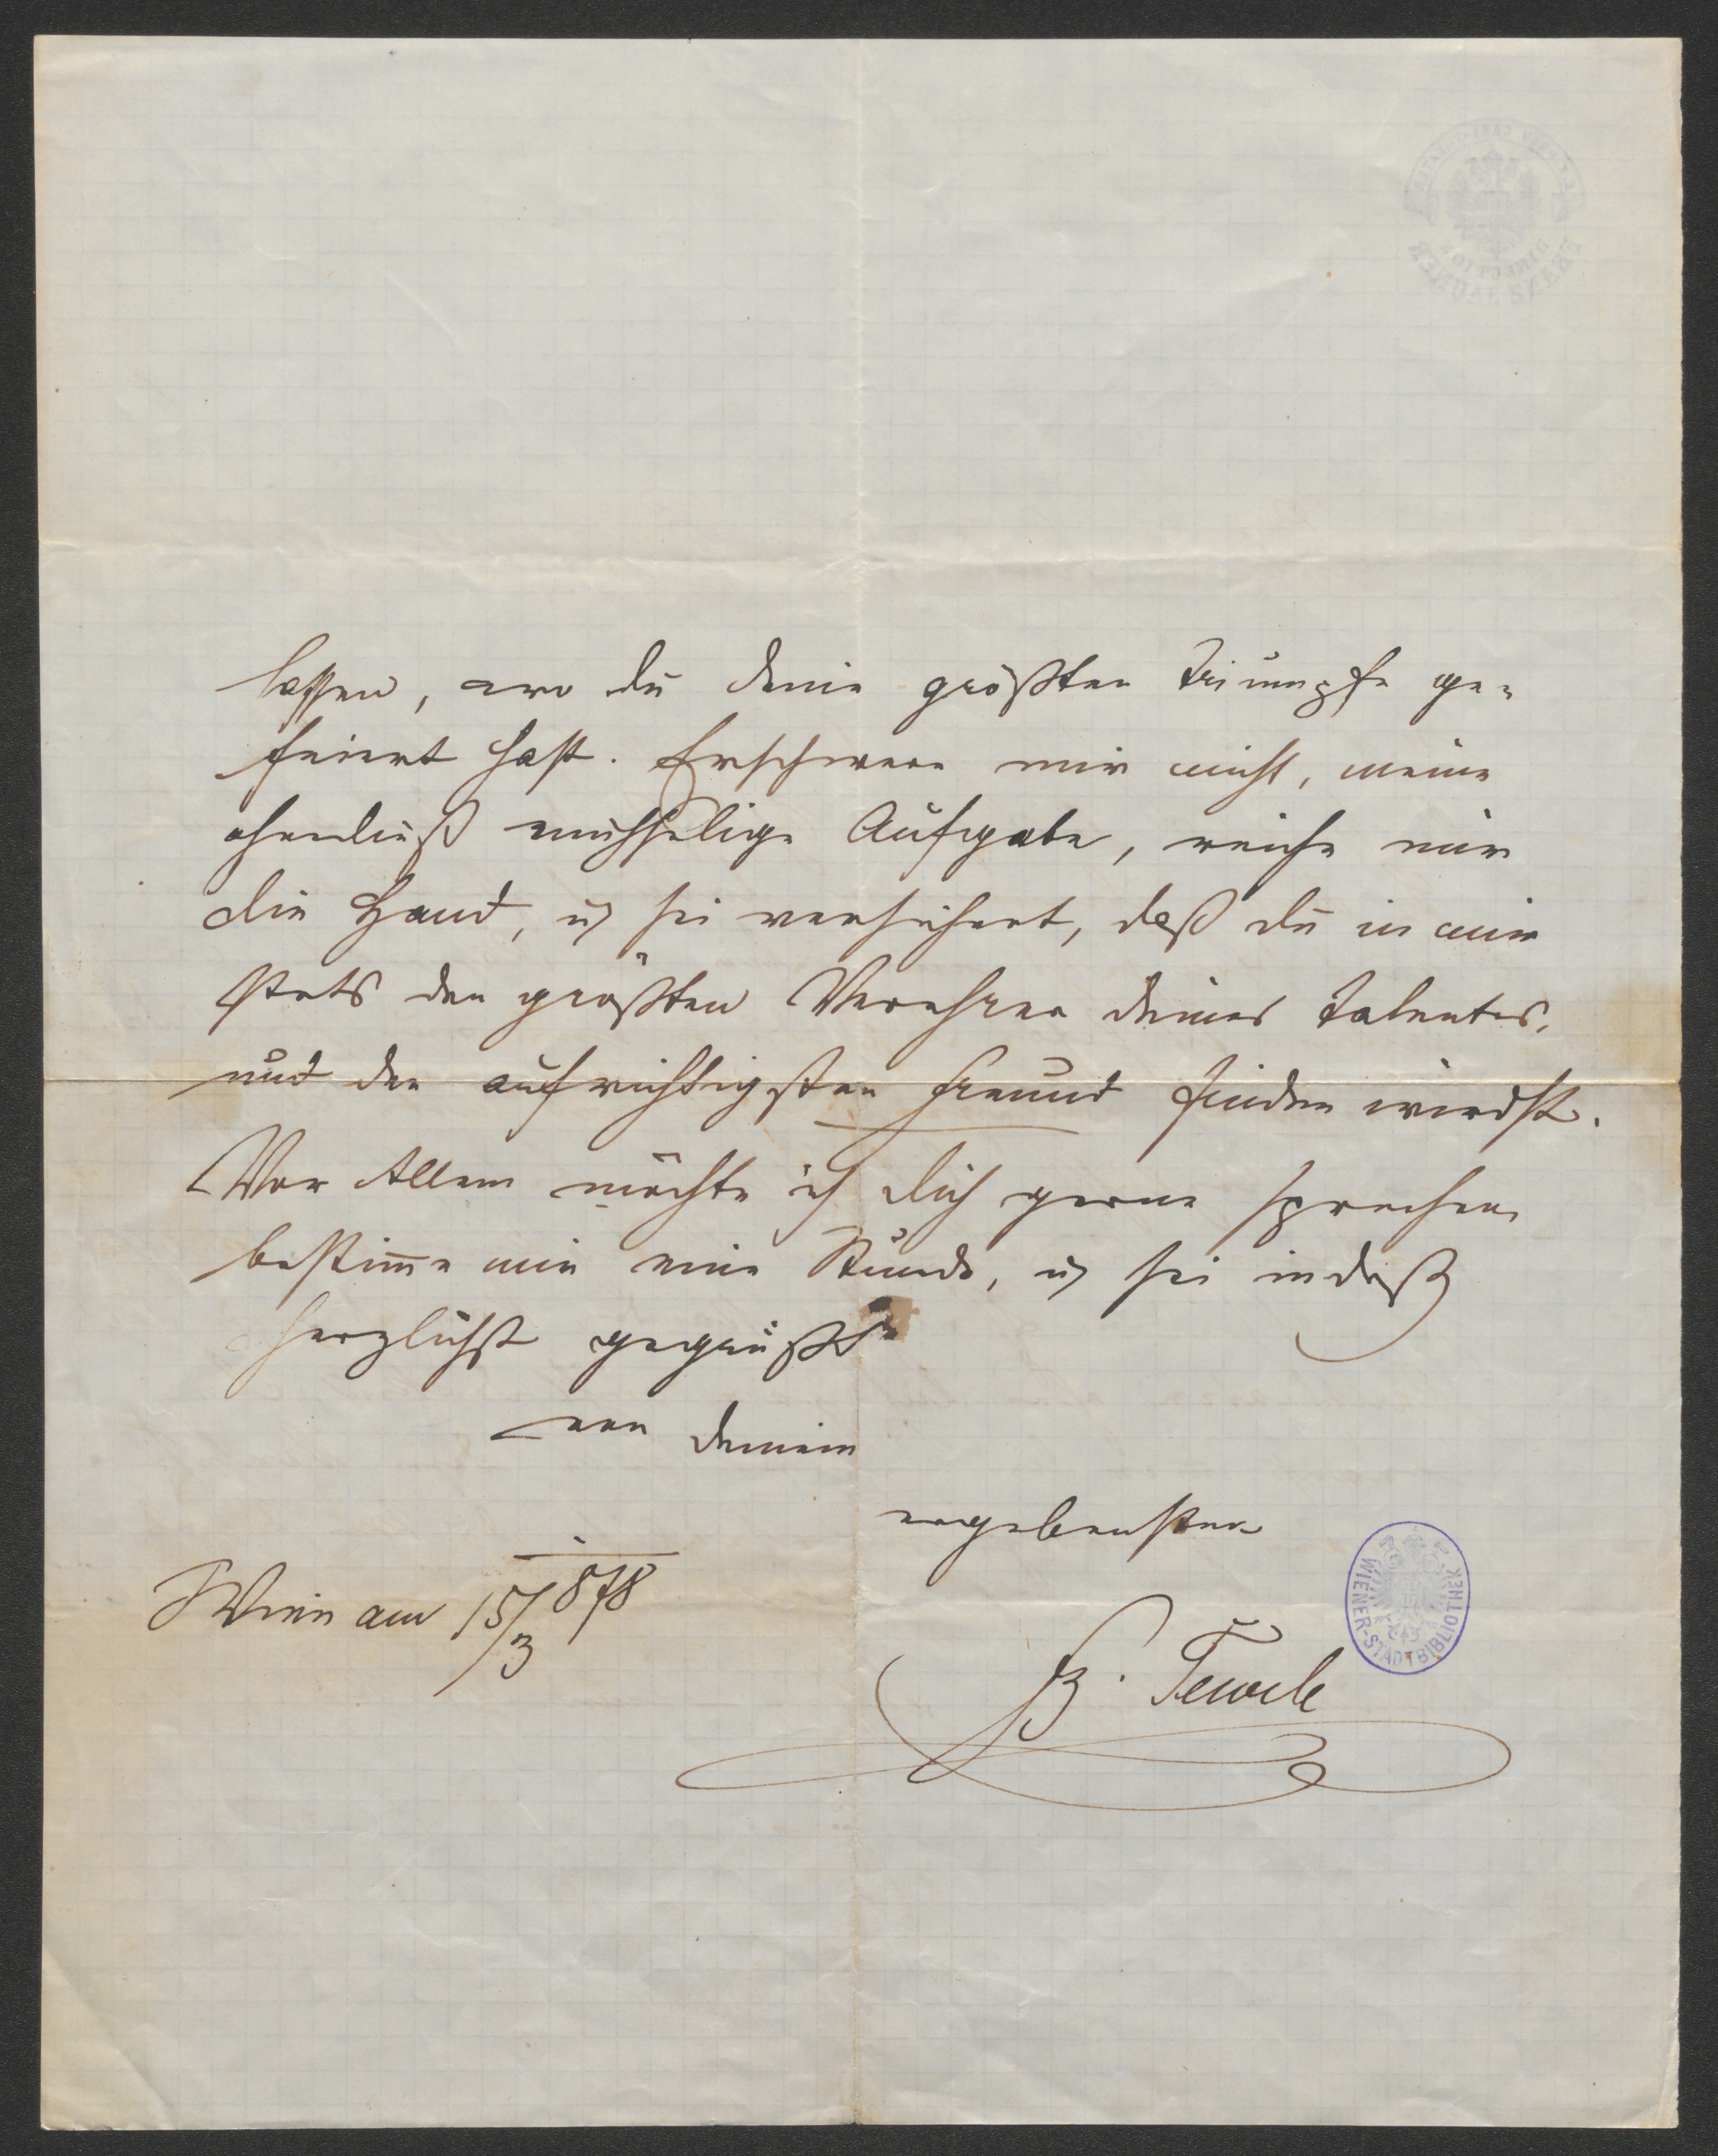 lassen, wo du deine größten Triumpfe ge-
feiert hast. Erschwere mir nicht, meine
ohnedieß mühselige Aufgabe, reiche mir
die Hand, u sei versichert, daß du in mir
stets den größten Verehrer deines Talentes,
und den aufrichtigsten Freund finden wirdst.
Vor Allem möchte ich dich gerne sprechen,
bestim̄e mir eine Stunde, u sei indeß
herzlichst gegrüßt
von deinem
ergebensten
Wien am 15/3 878
F. Tewele
WIENER-STADTBIBLIOTHEK